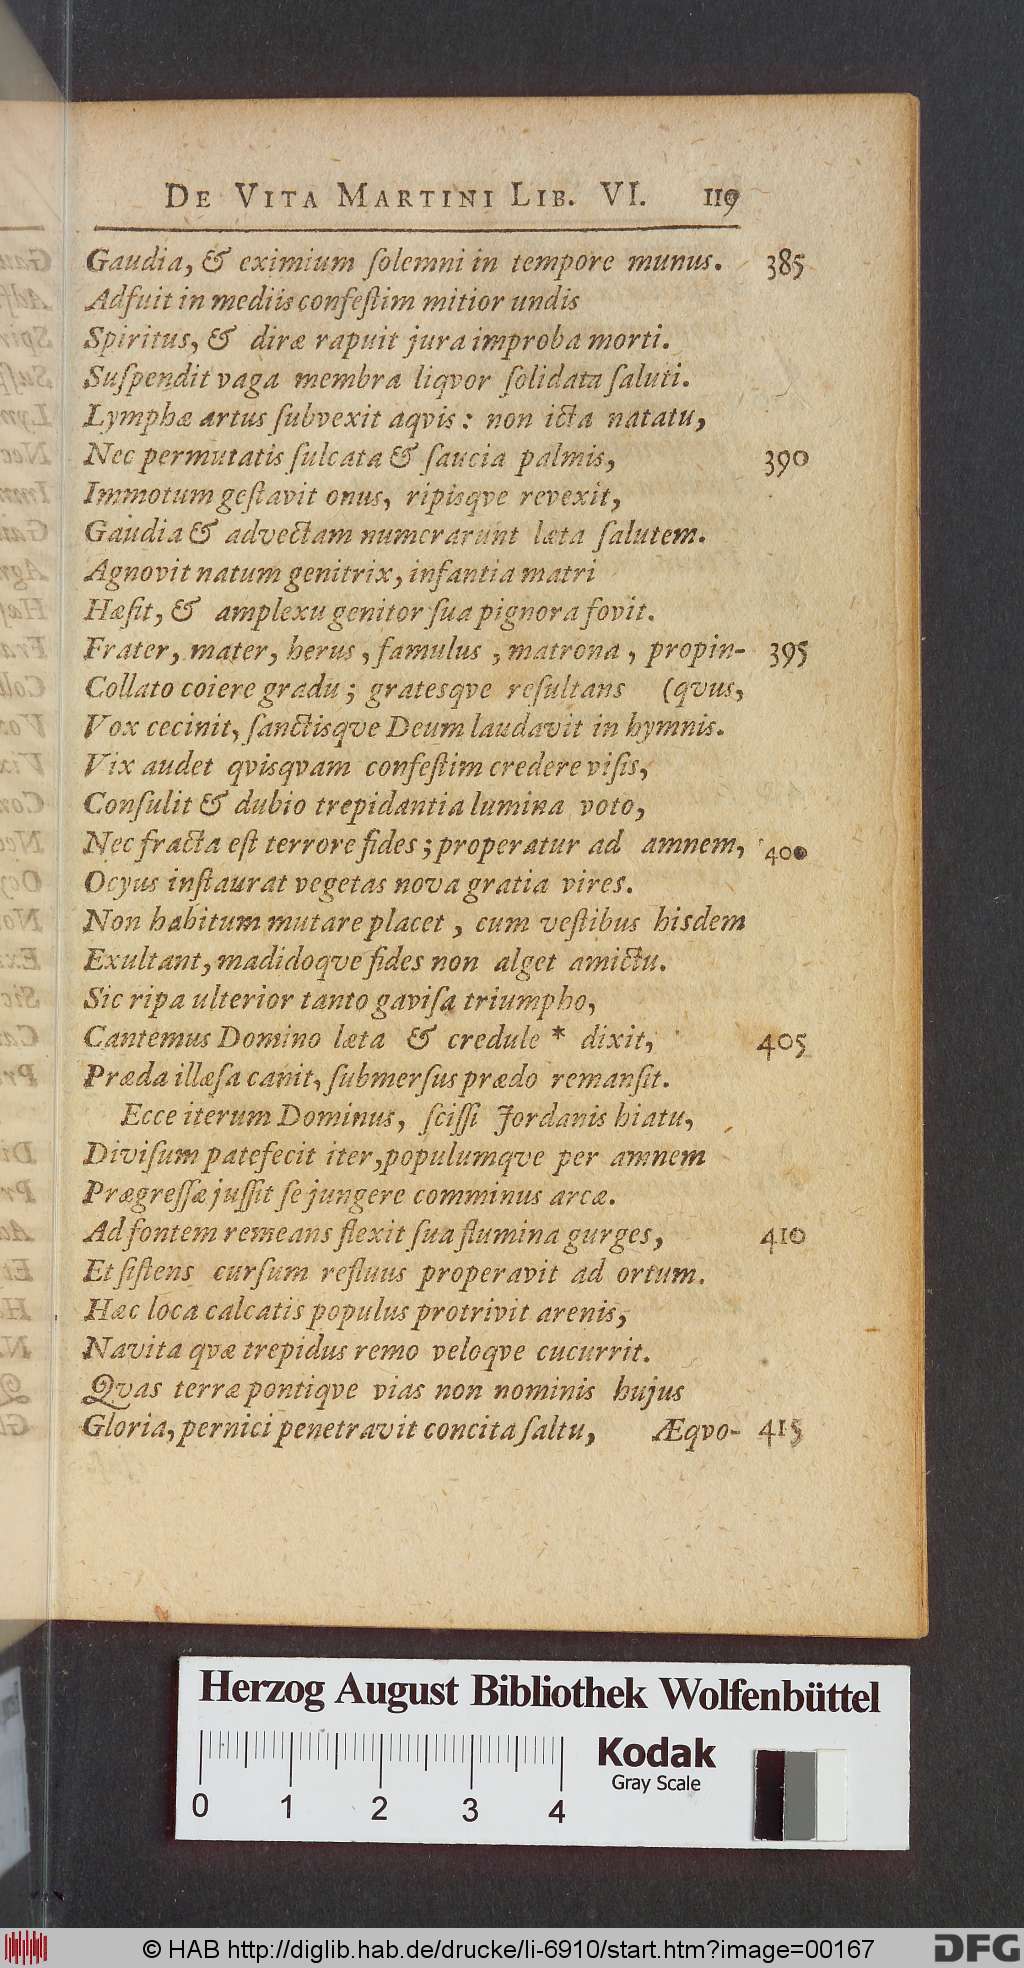 DE VITA MARTINI LIB. VI. 119
Gaudia, & eximium ſolemni in tempore munus. 385
Adfuit in mediis confeſtim mitior undis
Spiritus, & diræ rapuit jura improba morti.
Suſpendit vaga membra liqvor ſolidata ſaluti.
Lymphæ artus ſubvexit aqvis: non icta natatu,
Nec permutatis ſulcata & ſaucia palmis, 390
Immotum geſtavit onus, ripisqve revexit,
Gaudia & advectam numerarunt læta ſalutem.
Agnovit natum genitrix, infantia matri
Hæſit, & amplexu genitor ſua pignora fovit.
Frater, mater, herus, famulus, matrona, propin- 395
Collato coiere gradu; gratesqve reſultans (qvus,
Vox cecinit, ſanctisqve Deum laudavit in hymnis.
Vix audet qvisqvam confeſtim credere viſis,
Conſulit & dubio trepidantia lumina voto,
Nec fracta eſt terrore fides; properatur ad amnem, 400
Ocyus inſtaurat vegetas nova gratia vires.
Non habitum mutare placet, cum veſtibus hisdem
Exultant, madidoqve fides non alget amictu.
Sic ripa ulterior tanto gaviſa triumpho,
Cantemus Domino læta & credule * dixit, 405
Præda illæſa canit, ſubmerſus prædo remanſit.
Ecce iterum Dominus, ſciſſi Jordanis hiatu,
Diviſum patefecit iter, populumqve per amnem
Prægreſſæ juſſit ſe jungere comminus arcæ.
Ad fontem remeans flexit ſua flumina gurges, 410
Et ſiſtens curſum refluus properavit ad ortum.
Hæc loca calcatis populus protrivit arenis,
Navita qvæ trepidus remo veloqve cucurrit.
Qvas terræ pontiqve vias non nominis hujus
Gloria, pernici penetravit concita ſaltu, Æqvo- 415
Herzog August Bibliothek Wolfenbüttel
Kodak
Gray Scale
0 1 2 3 4
© HAB http://diglib.hab.de/drucke/li-6910/start.htm?image=00167
DFG